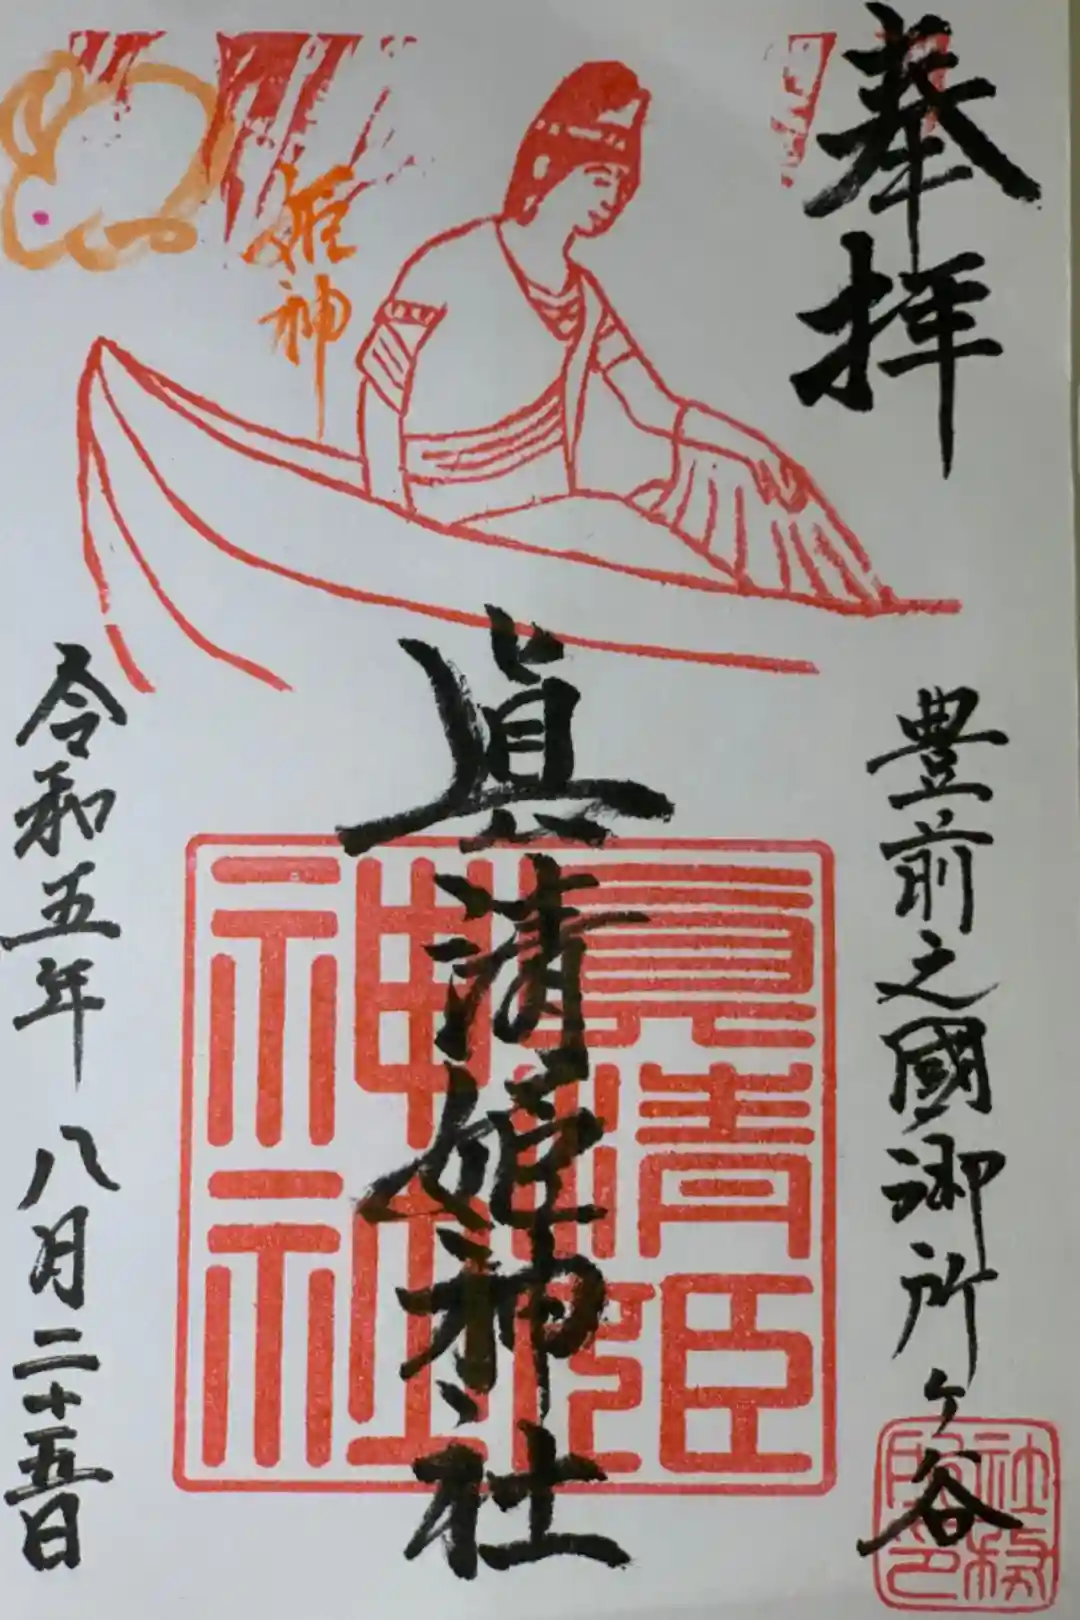 奉拝
豊前之國御所ヶ谷
社務
眞清姫神社
眞清姫
神社
姫神
令和五年 八月二十五日